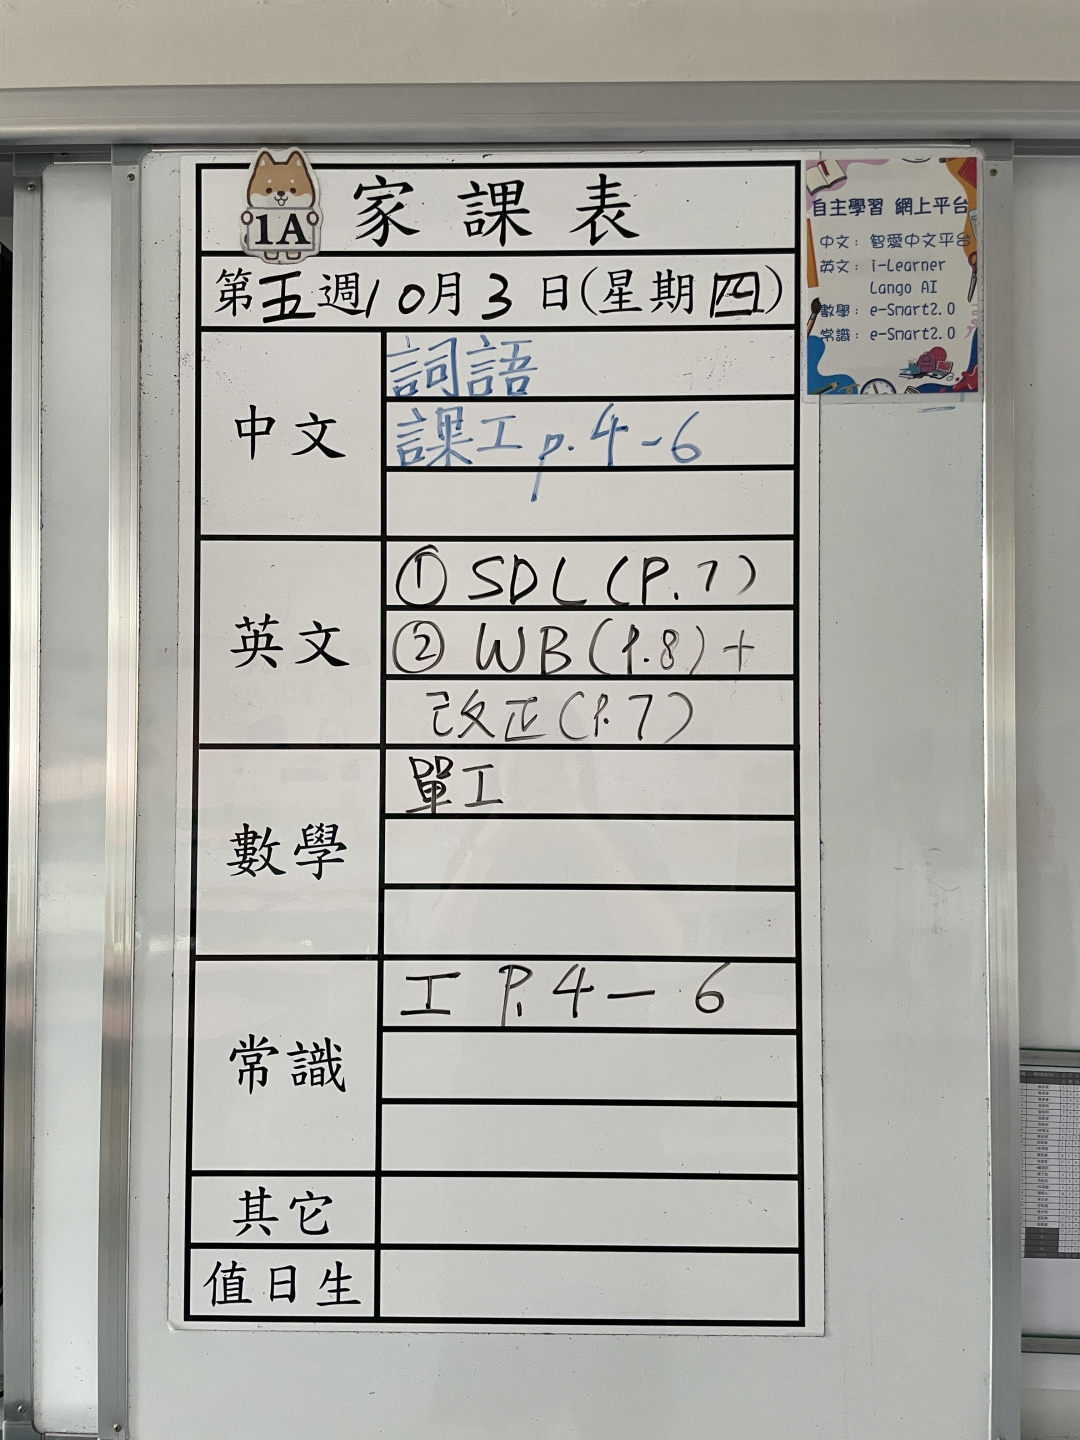 1A
家課表
第五週10月3日(星期四)
中文
詞語
課工p.4-6
英文
① SDL(P.7)
② WB(P.8)+
改正(P.7)
數學
單工
常識
工 P.4-6
其它
值日生
自主學習 網上平台
中文：智愛中文平台
英文：i-Learner
Lango AI
數學：e-Smart2.0
常識：e-Smart2.0